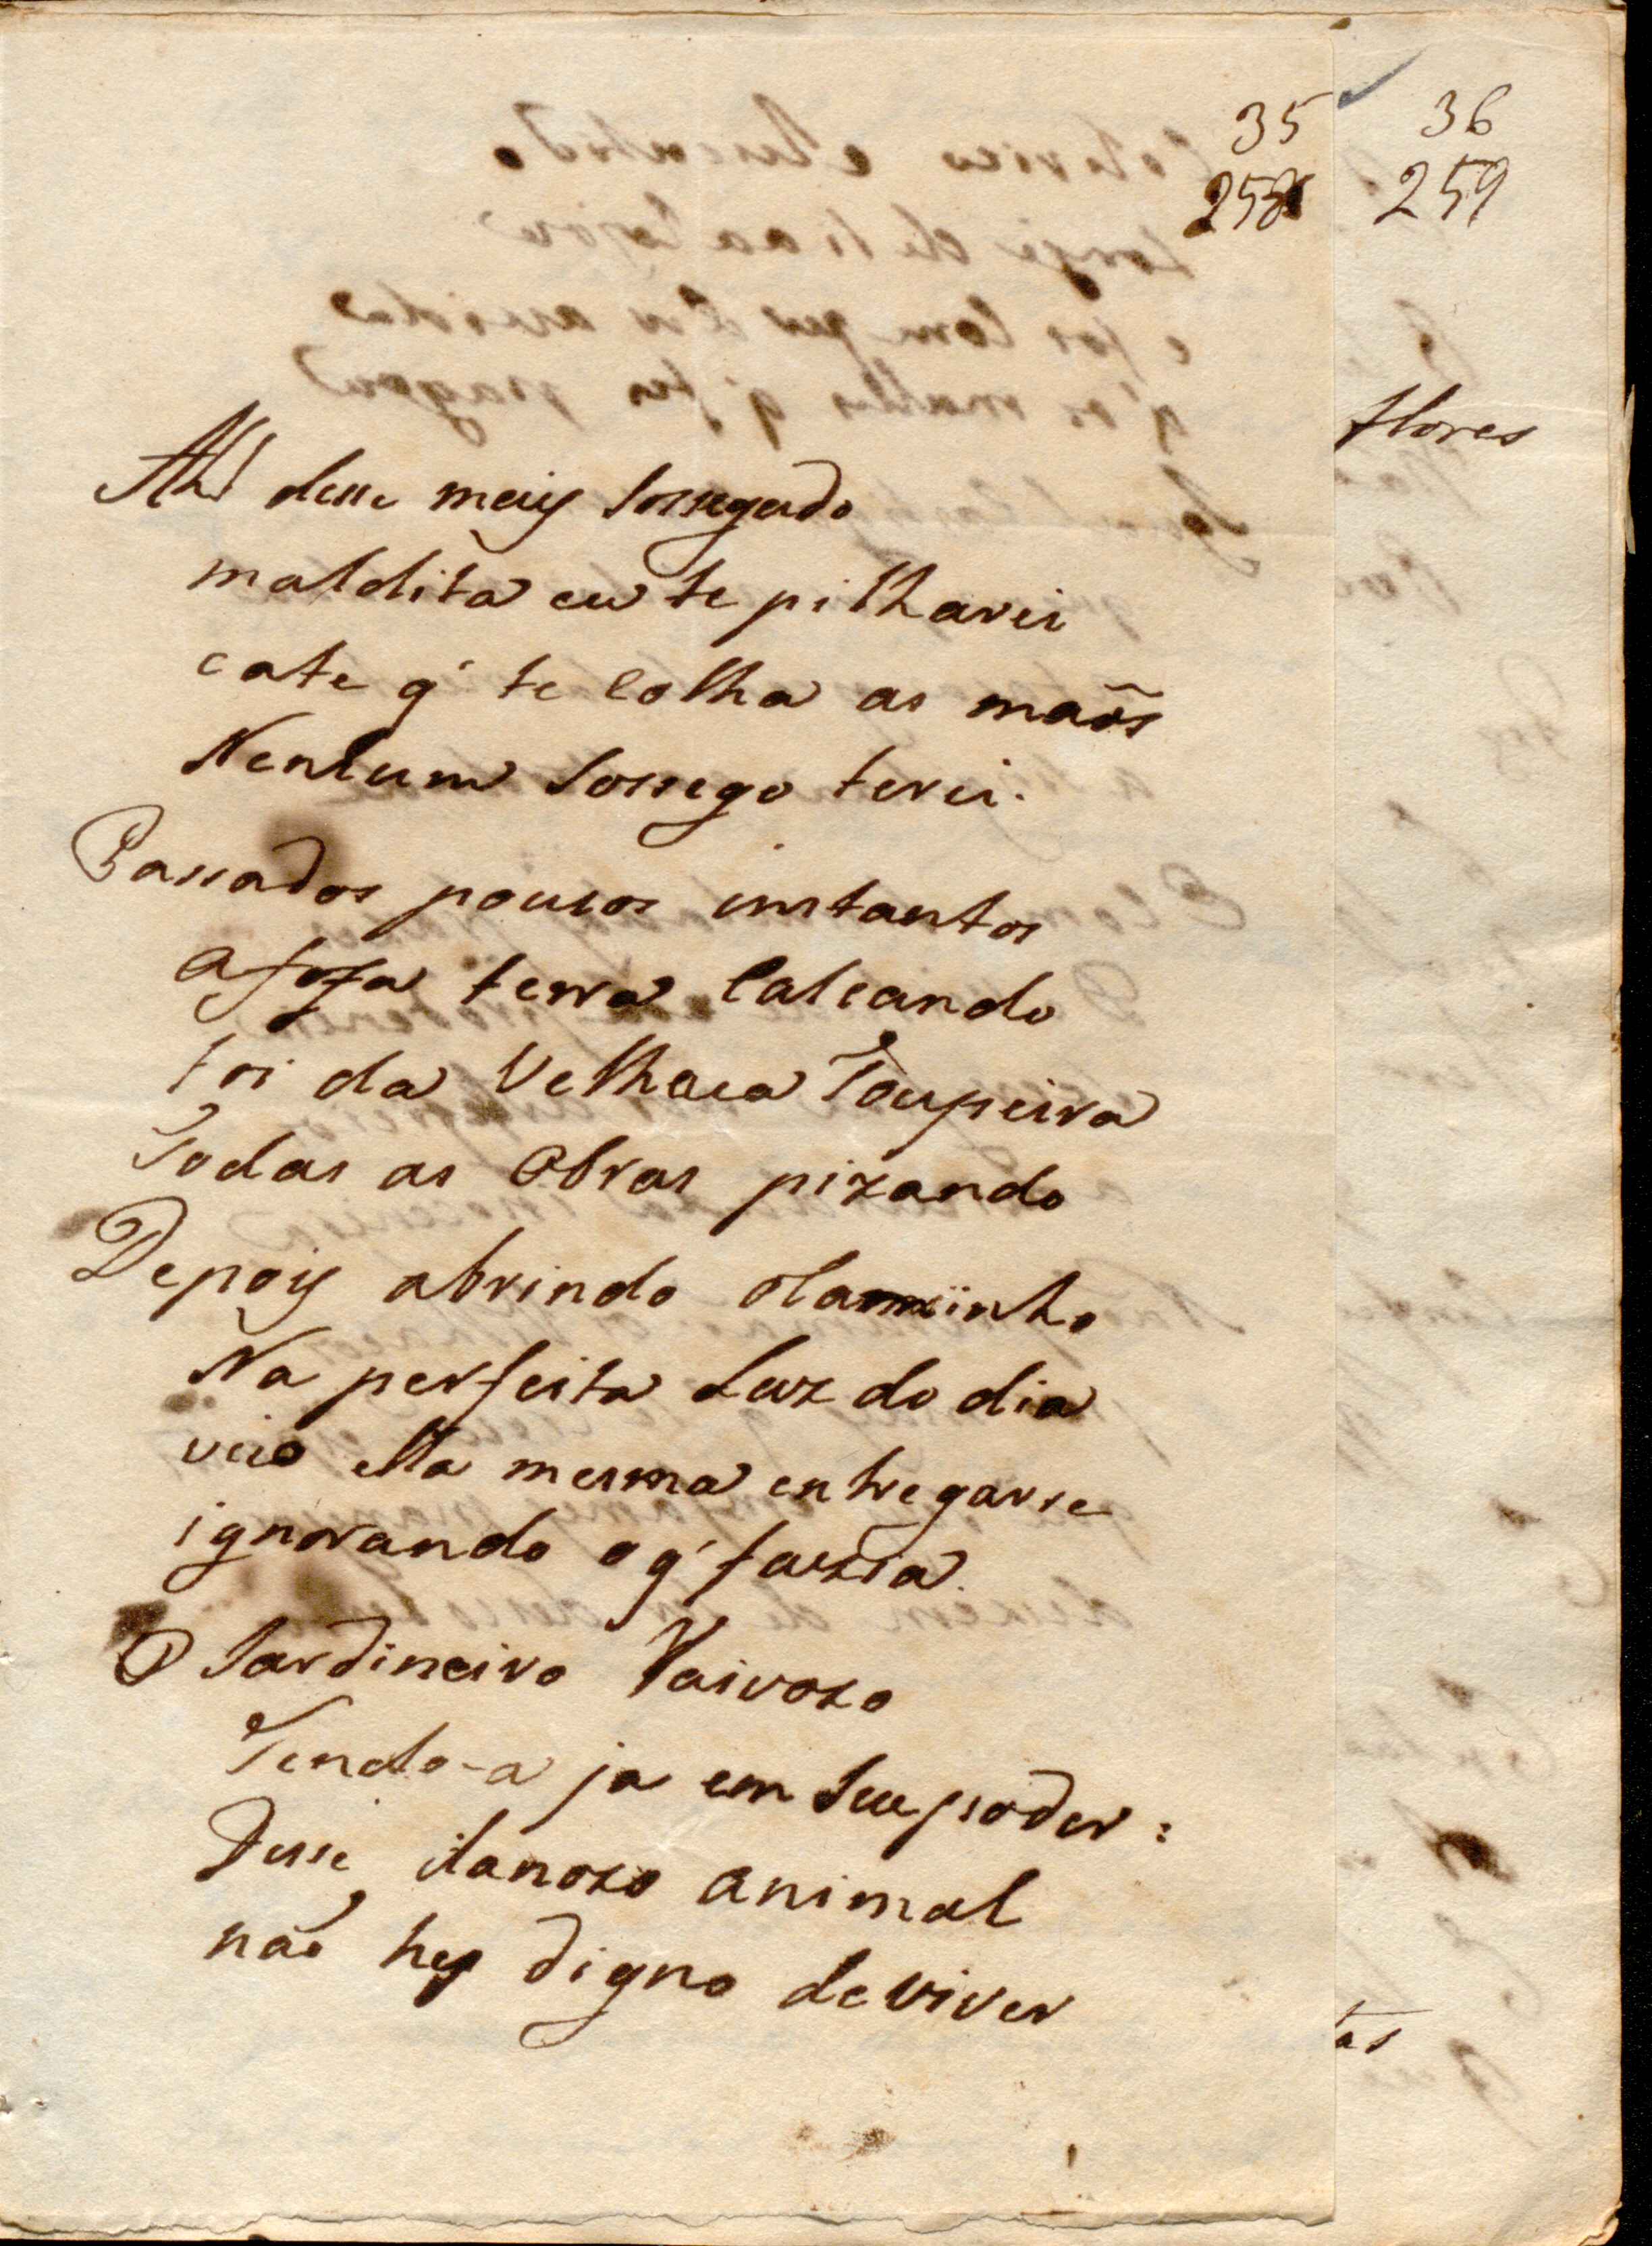 35
258
36
259
flores
Ah! disse mais Sossegado
maldita eu te pilharei
e ate q' te Colha as maõs
Nenhum Sossego terei.
Passados poucos instantos
a fofa terra Calcando
foi da Velhaca Toupeira
Todas as Obras pizando
Depois abrindo o Caminho
Na perfeita Luz do dia
veio ella mesma entregarse
ignorando o q' fazia.
O Jardineiro Raivozo
Tendo-a ja em Seu poder:
Disse, danozo animal
não hes digno de viver
tas